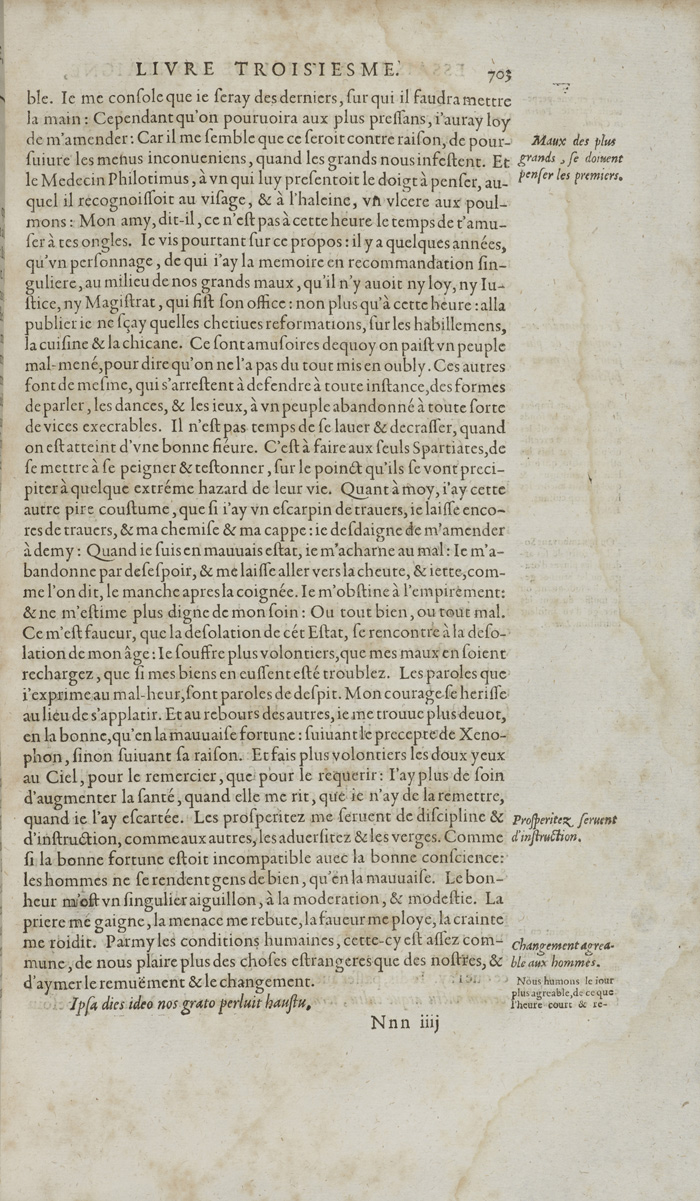 LIVRE TROISIESME.
703
ble. Ie me conſole que ie ſeray des derniers, ſur qui il faudra mettre
la main : Cependant qu'on pouruoira aux plus preſſans, i'auray loy
de m'amender : Car il me ſemble que ce ſeroit contre raiſon, de pour-
ſuiure les menus inconueniens, quand les grands nous infeſtent. Et
le Medecin Philotimus, à vn qui luy preſentoit le doigt à penſer, au-
quel il recognoiſſoit au viſage, & à l'haleine, vn vlcere aux poul-
mons : Mon amy, dit-il, ce n'eſt pas à cette heure le temps de t'amu-
ſer à tes ongles. Ie vis pourtant ſur ce propos : il y a quelques années,
qu'vn perſonnage, de qui i'ay la memoire en recommandation ſin-
guliere, au milieu de nos grands maux, qu'il n'y auoit ny loy, ny Iu-
ſtice, ny Magiſtrat, qui fiſt ſon office : non plus qu'à cette heure : alla
publier ie ne ſçay quelles chetiues reformations, ſur les habillemens,
la cuiſine & la chicane. Ce ſont amuſoires dequoy on paiſt vn peuple
mal-mené, pour dire qu'on ne l'a pas du tout mis en oubly. Ces autres
font de meſme, qui s'arreſtent à defendre à toute inſtance, des formes
de parler, les dances, & les ieux, à vn peuple abandonné à toute ſorte
de vices execrables. Il n'eſt pas temps de ſe lauer & decraſſer, quand
on eſt atteint d'vne bonne fiéure. C'eſt à faire aux ſeuls Spartiates, de
ſe mettre à ſe peigner & teſtonner, ſur le poinct qu'ils ſe vont preci-
piter à quelque extréme hazard de leur vie. Quant à moy, i'ay cette
autre pire couſtume, que ſi i'ay vn eſcarpin de trauers, ie laiſſe enco-
res de trauers, & ma chemiſe & ma cappe : ie deſdaigne de m'amender
à demy : Quand ie ſuis en mauuais eſtat, ie m'acharne au mal : Ie m'a-
bandonne par deſeſpoir, & me laiſſe aller vers la cheute, & iette, com-
me l'on dit, le manche apres la coignée. Ie m'obſtine à l'empirement:
& ne m'eſtime plus digne de mon ſoin : Ou tout bien, ou tout mal.
Ce m'eſt faueur, que la deſolation de cét Eſtat, ſe rencontre à la deſo-
lation de mon âge : Ie ſouffre plus volontiers, que mes maux en ſoient
rechargez, que ſi mes biens en euſſent eſté troublez. Les paroles que
i'exprime au mal-heur, ſont paroles de deſpit. Mon courage ſe heriſſe
au lieu de s'applatir. Et au rebours des autres, ie me trouue plus deuot,
en la bonne, qu'en la mauuaiſe fortune : ſuiuant le precepte de Xeno-
phon, ſinon ſuiuant ſa raiſon. Et fais plus volontiers les doux yeux
au Ciel, pour le remercier, que pour le requerir : I'ay plus de ſoin
d'augmenter la ſanté, quand elle me rit, que ie n'ay de la remettre,
quand ie l'ay eſcartée. Les proſperitez me ſeruent de diſcipline &
d'inſtruction, comme aux autres, les aduerſitez & les verges. Comme
ſi la bonne fortune eſtoit incompatible auec la bonne conſcience:
les hommes ne ſe rendent gens de bien, qu'en la mauuaiſe. Le bon-
heur m'eſt vn ſingulier aiguillon, à la moderation, & modeſtie. La
priere me gaigne, la menace me rebute, la faueur me ploye, la crainte
me roidit. Parmy les conditions humaines, cette-cy eſt aſſez com-
mune, de nous plaire plus des choſes eſtrangeres que des noſtres, &
d'aymer le remuëment & le changement.
Ipſa dies ideo nos grato perluit hauſtu,
Nnn iiij
Maux des plus
grands, ſe doiuent
penſer les premiers.
Proſperitez ſeruent
d'inſtruction.
Changement agrea-
ble aux hommes.
Nous humons le iour
plus agreable, de ce que
l'heure court & re-